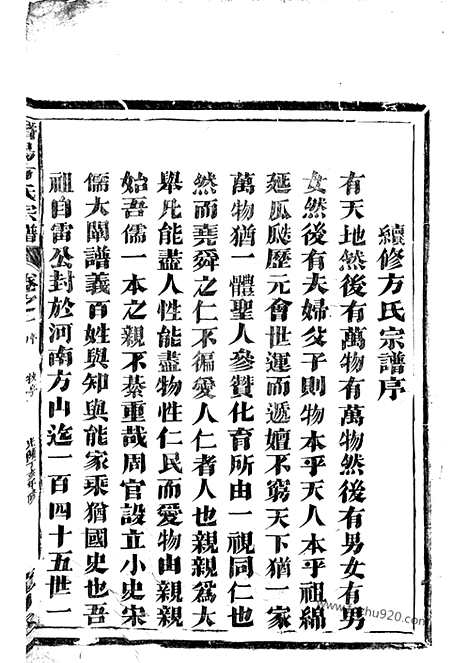 續修方氏宗譜序
有天地然後有萬物有萬物然後有男女有男
女然後有夫婦父子則物本乎天人本乎祖綿
延瓜瓞歷元會世運而遞嬗不窮天下猶一家
萬物猶一體聖人參贊化育所由一視同仁也
然而堯舜之仁不徧愛人仁者人也親親為大
舉凡能盡人性能盡物性仁民而愛物由親親
始吾儒一本之親不綦重哉周官設立小史宋
儒大闡譜義百姓與知與能家乘猶國史也吾
祖自雷公封於河南方山迄一百四十五世一
方氏宗譜
卷之一 序
shu920.com